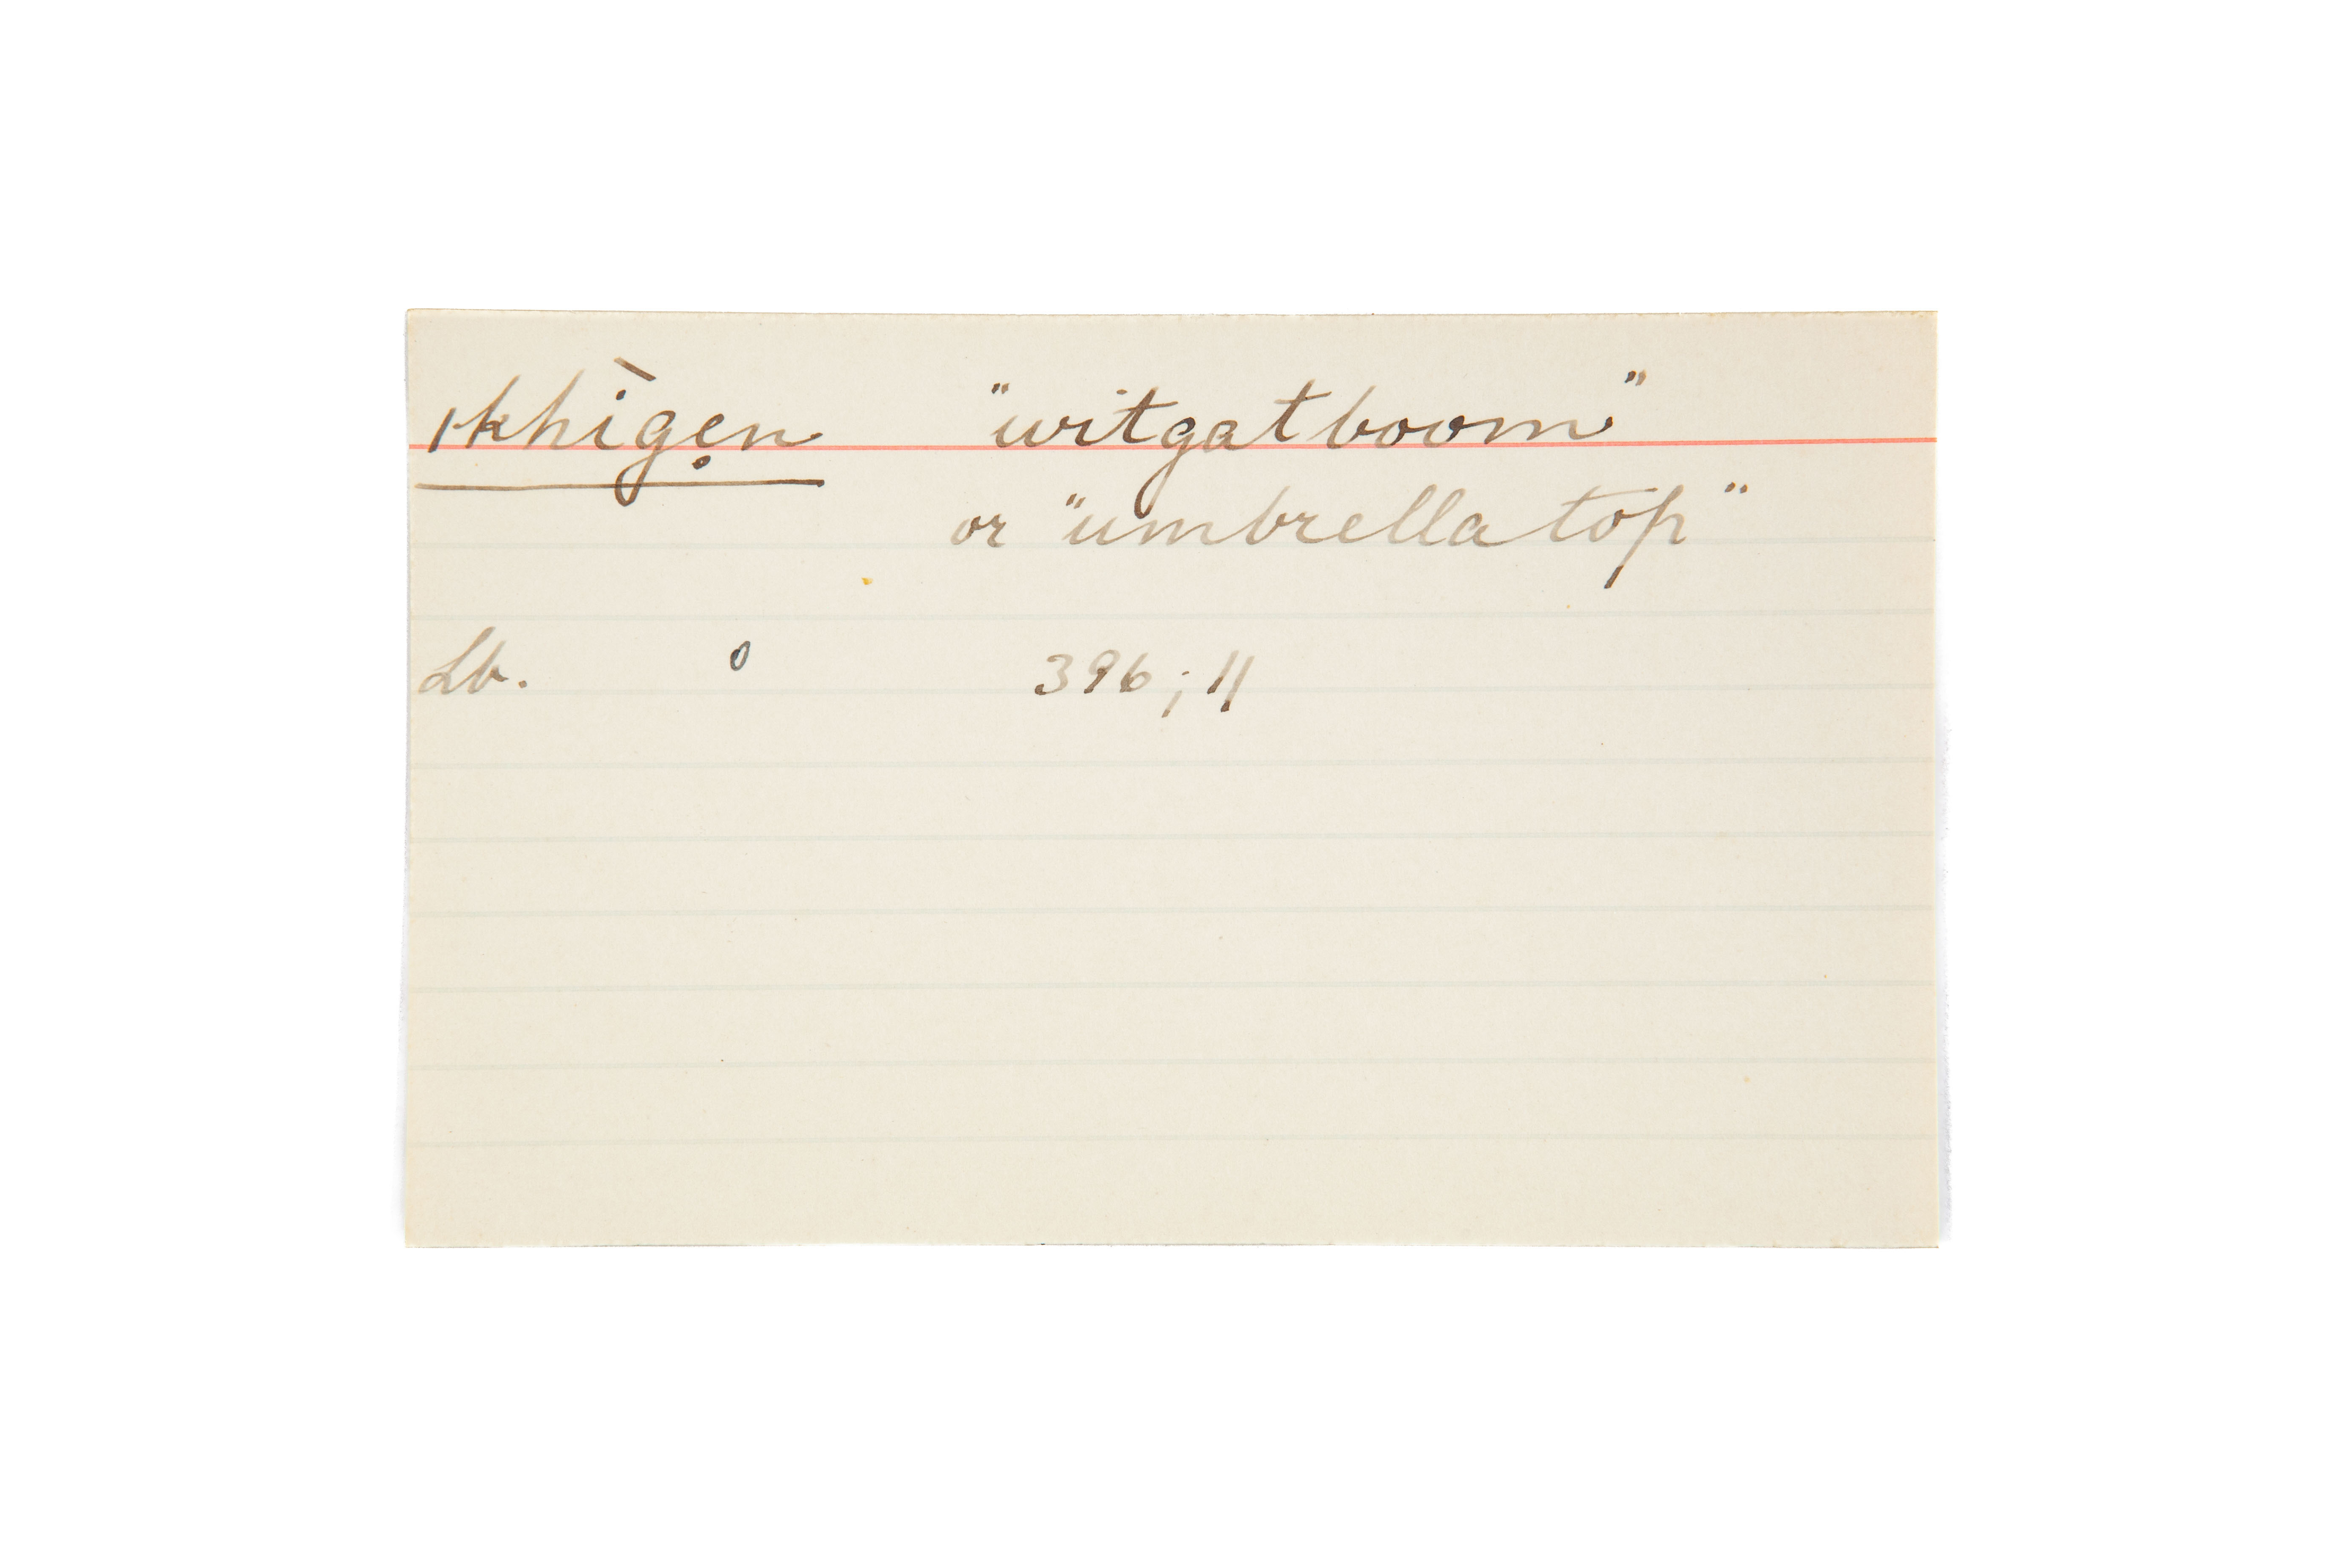 ǀkhìgẹn "witgatboom"
or "umbrella top"
Lb. 0 396; 11